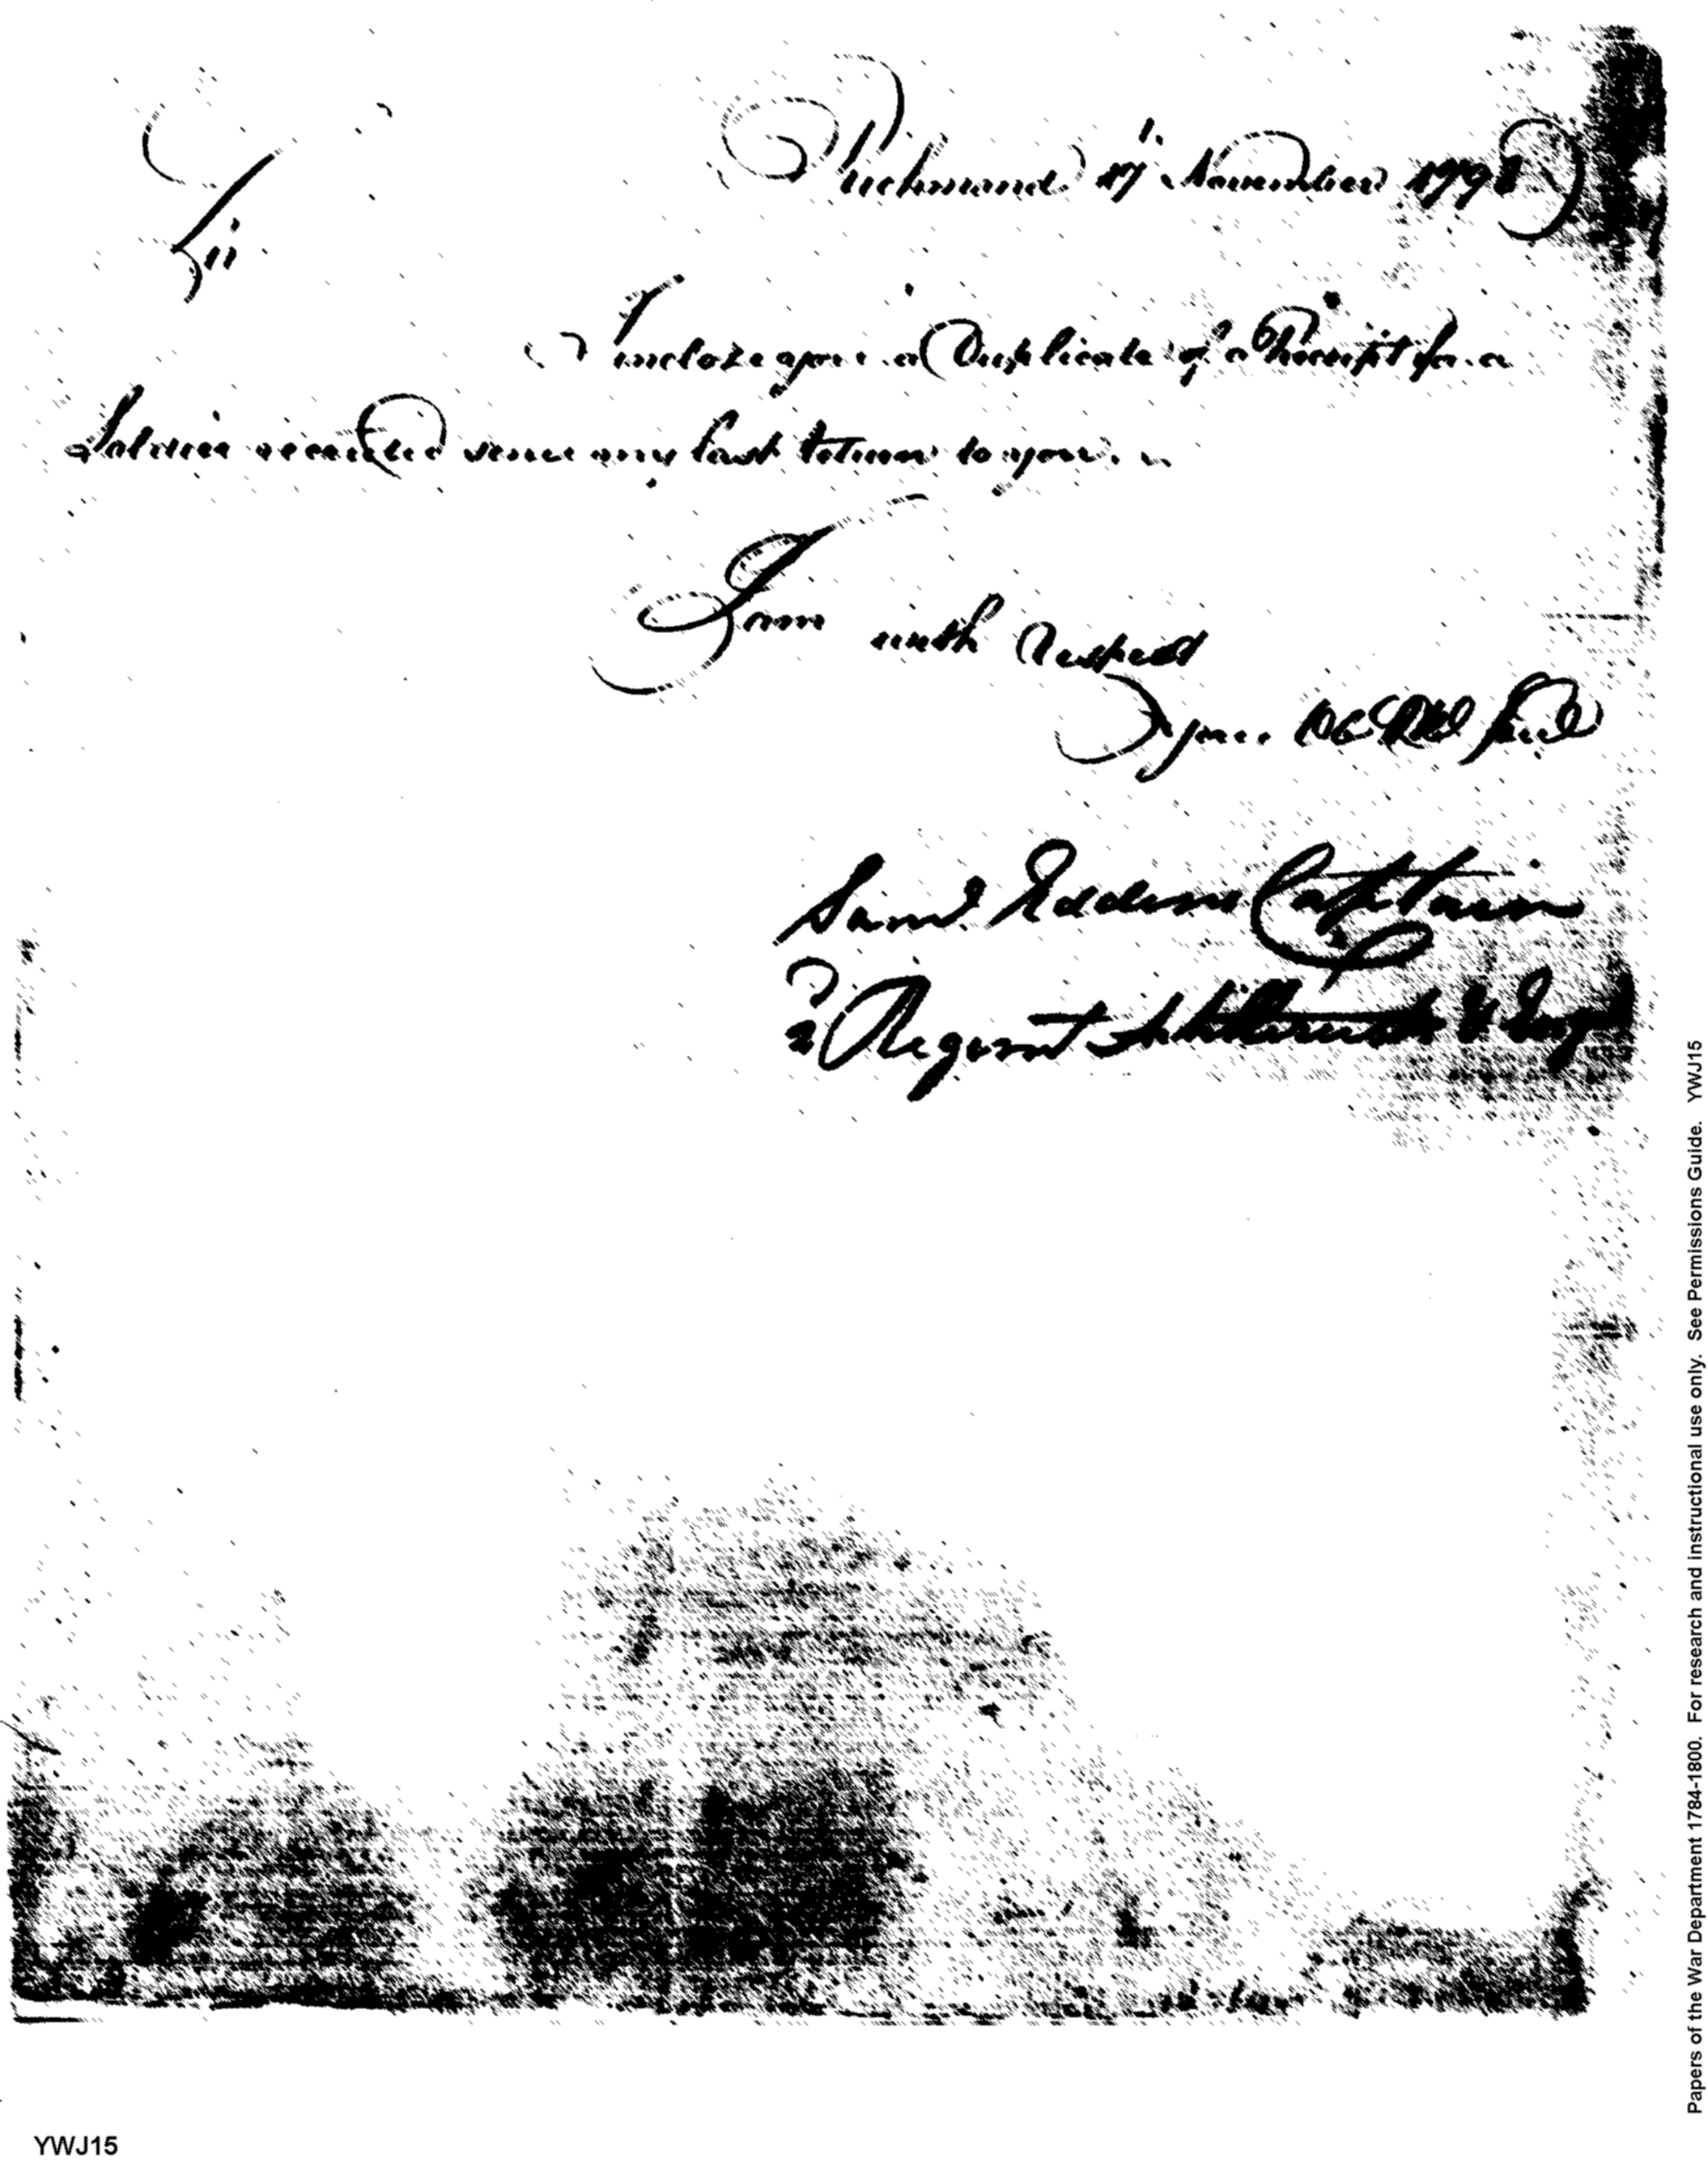 Richmond 17 November 1798
Sir
I inclose you a Duplicate of a Receipt for a
Soldier recruited since my last return to you.
I am with Respect
your Ob Hbl Serv
Saml. Eddins Captain
2 Regimt Artillerists & Eng
Papers of the War Department 1784-1800. For research and instructional use only. See Permissions Guide. YWJ15
YWJ15